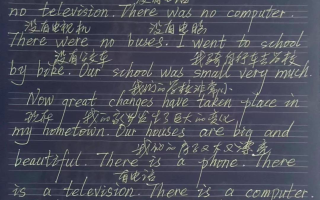 no television. There was no computer.
没有电视机 没有电脑
There were no buses. I went to school
没有公交车 我骑自行车去学校
by bike. Our school was small very much.
我们的学校非常小
Now great changes have taken place in
现在 我的家乡发生了巨大的变化
my hometown. Our houses are big and
我们的房子又大又漂亮
beautiful. There is a phone. There
有电话
is a television. There is a computer.